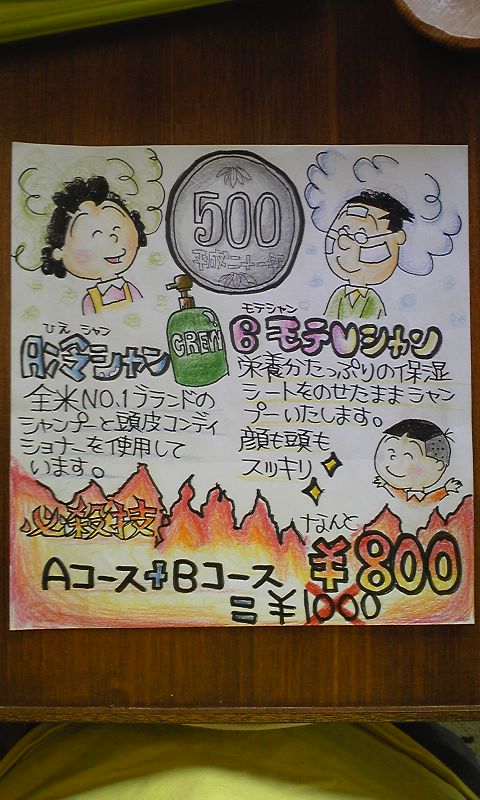 500
平成二十一年
CREW
ひえ シャン
A冷シャン
全米NO.1ブランドの
シャンプーと頭皮コンディ
ショナーを使用して
います。
モテシャン
BモテVシャン
栄養がたっぷりの保湿
シートをのせたままシャン
プーいたします。
顔も頭も
スッキリ
必殺技
なんと
Aコース+Bコース ¥800
=¥1000